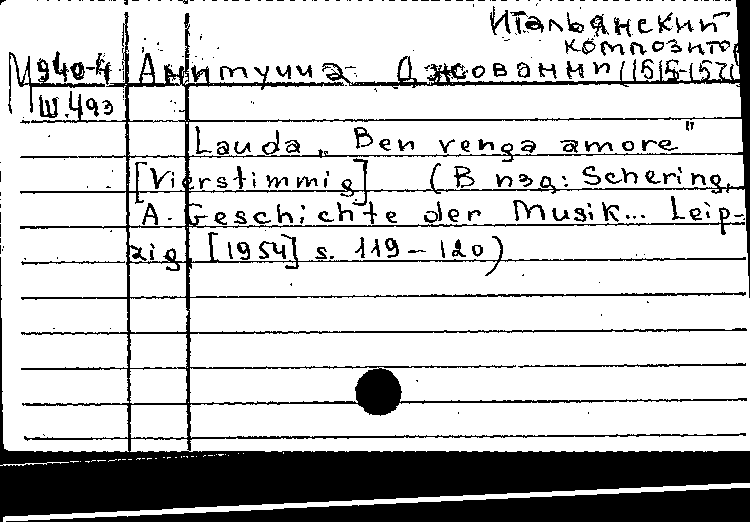 Итальянский
композитор
М 940-4 Анимучиа Джованни (1515-1571
Ш.493
Lauda „Ben venga amore"
[Vierstimmig] (В изд: Schering,
A. Geschichte der Musik... Leip-
zig, [1954] s. 119-120)